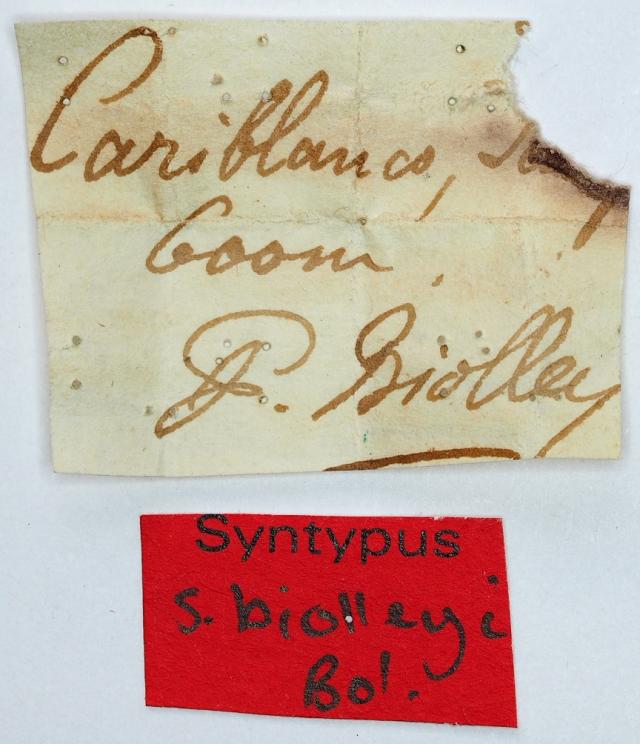 Cariblanco,
600m.
P. Biolley
Syntypus
S. biolleyi
Bol.